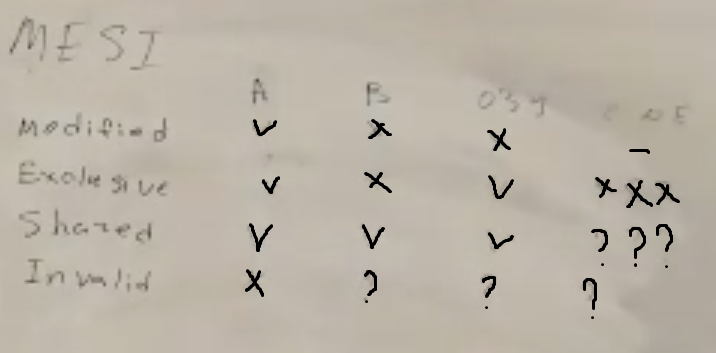 MESI
A B
Modified ✓ x x –
Exclusive ✓ x ✓ x x x
Shared ✓ ✓ ✓ ? ? ?
Invalid x ? ? ?